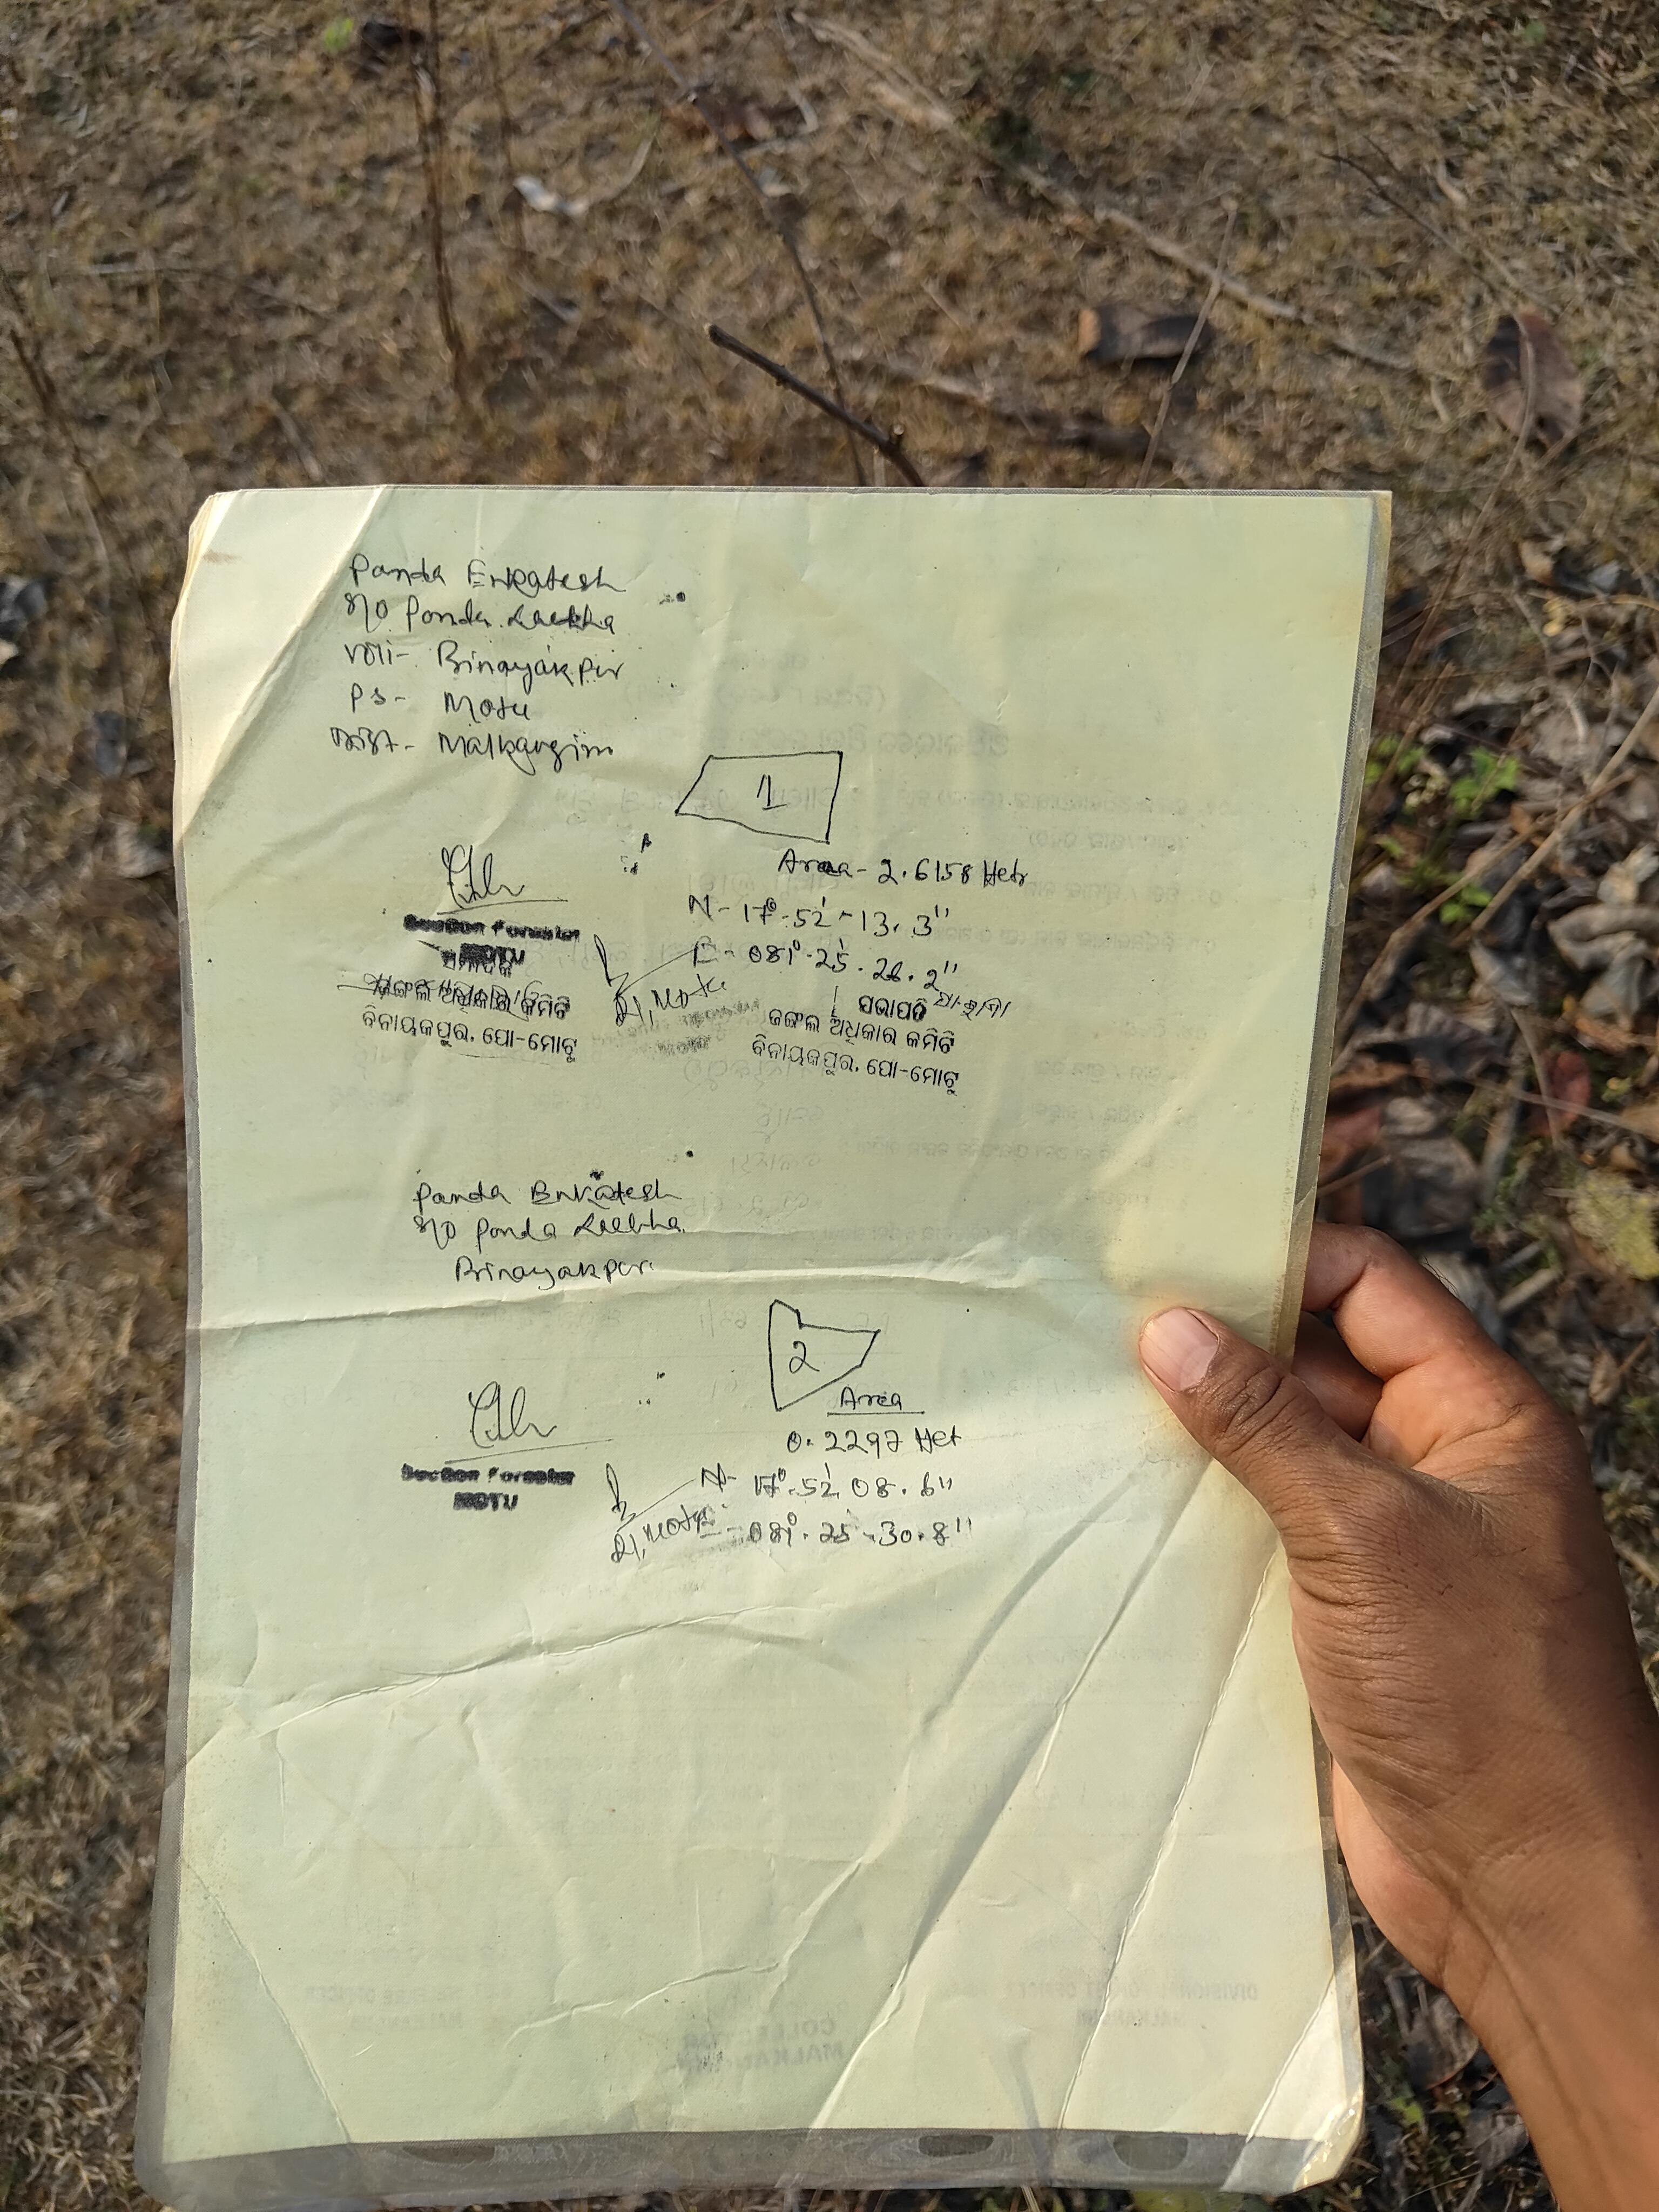 Panda Enkatesh
S/O Panda Lachha
Vill- Binayakpur
PS- Motu
Dist- Malkangiri
1
Area - 2.6158 Hetr
N- 17°-52'-13.3"
E- 081°-25'.26.2"
Section Forester
MOTU
ସମ୍ପାଦକ
ଜଙ୍ଗଲ ଅଧିକାର କମିଟି
ବିନାୟକପୁର, ପୋ-ମୋଟୁ
RI, Motu
ସଭାପତି
ଜଙ୍ଗଲ ଅଧିକାର କମିଟି
ବିନାୟକପୁର, ପୋ-ମୋଟୁ
Panda Enkatesh
S/O Panda Lachha
Binayakpur
2
Area
0.2297 Het
N- 17°-52' 08.6"
E- 081°-25'-30.8"
Section Forester
MOTU
RI, Motu